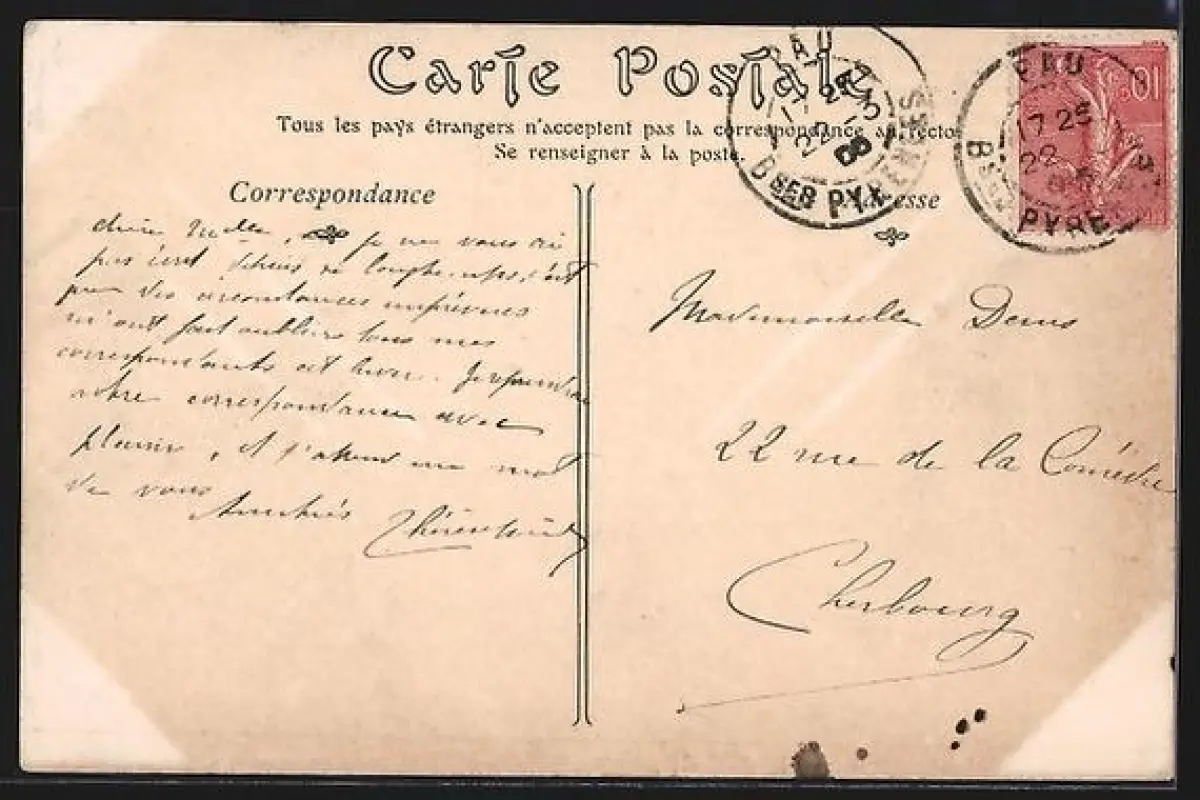 Carte Postale
Tous les pays étrangers n'acceptent pas la correspondance au recto
Se renseigner à la poste.
Correspondance
Adresse
PAU
17 25
22 -3
06
BSES PYRENEES
PAU
17 25
22
BSES PYRE
10
chère Melle, Je ne vous ai
pas écrit depuis si longtemps, c'est
que des circonstances imprévues
m'ont fait oublier tous mes
correspondants et bien. Je reprendrai
votre correspondance avec
plaisir, et j'attend un mot
de vous
Amitiés
Mademoiselle Denis
22 rue de la Comédie
Cherbourg